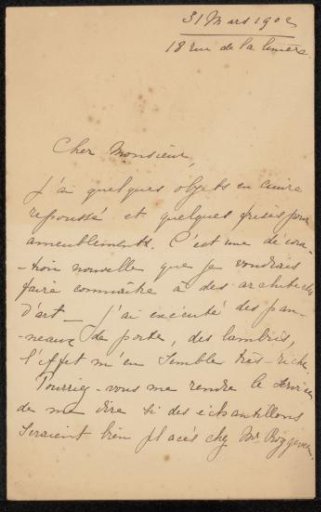 31 Mars 1902
18 rue de la
Cher Monsieur,
J'ai quelques objets en cuivre
repoussé et quelques frises pour
ameublements. C'est une décora-
-tion nouvelle que je voudrais
faire connaître à des architectes
d'art — j'ai exécuté des pan-
-neaux de porte, des lambris,
l'effet m'en semble très-riche
Pourriez-vous me rendre le service
de me dire si des échantillons
seraient bien placés chez Mr